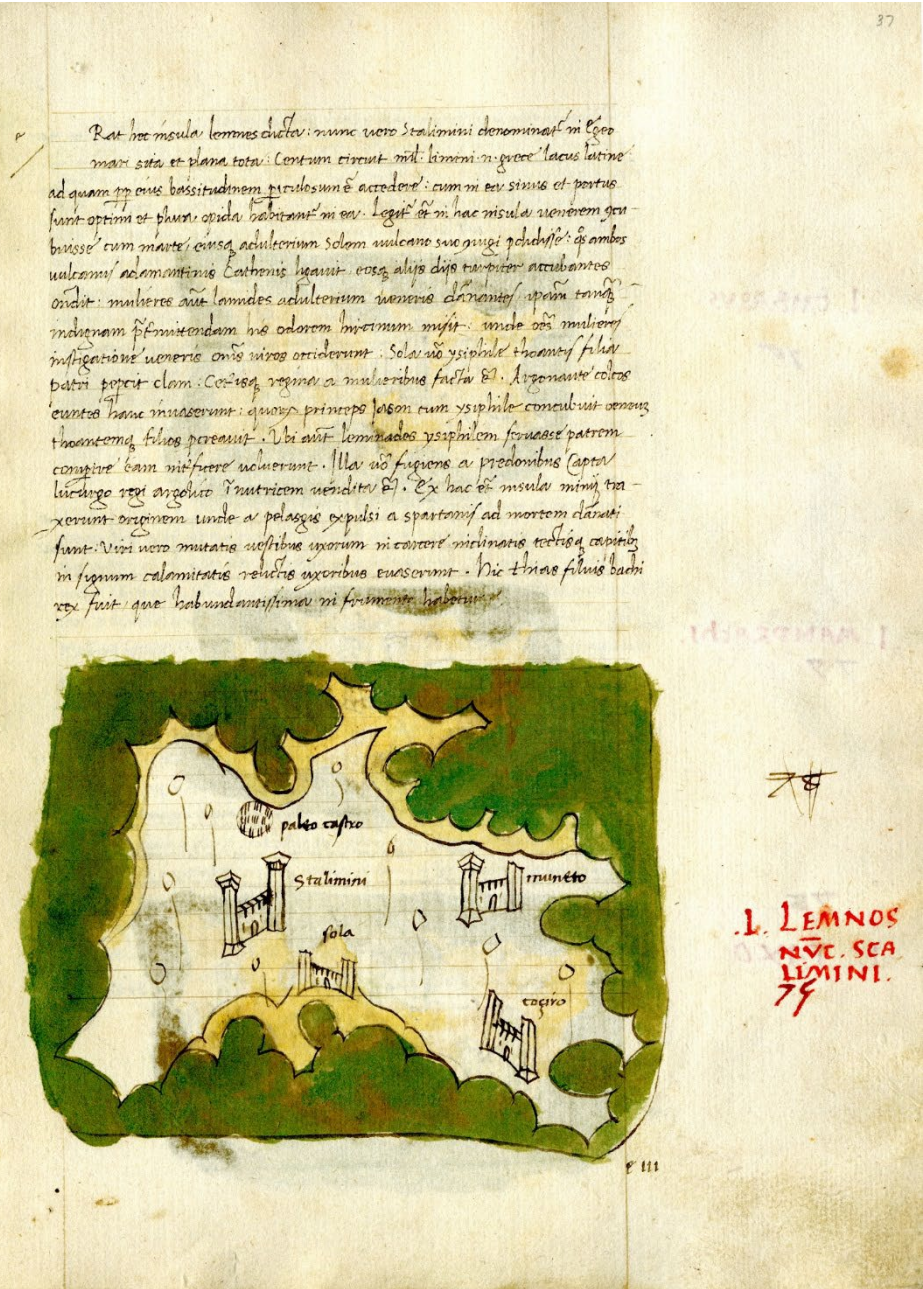 37
Rat hec insula lemnos dicta: nunc vero Stalimini denominat in Egeo
mari sita et plana tota: Centum circuit mil: limini n grece lacus latine
ad quam pp eius bassitudinem piculosum e accedere: cum in ea sinus et portus
sunt optimi et plura opida habitant in ea. Legit et in hac insula venerem 9cu-
buisse cum marte, eiusq adulterium Solem vulcano suo iugi pdidisse: qs ambos
vulcanus adamantinis Cathenis ligavit eosq alijs dijs turpiter accubantes
ondit: mulieres aut adulterium veneris danantes ipam tanq
indignam his odorem hircinum misit: unde oes mulieres
instigatione veneris oms viros occiderunt. Sola vo ysiphile thoantis filia
patri pepcit clam. regina a mulieribus facta e. Argonaute colcos
euntes hanc invaserunt: quorum princeps Jason cum ysiphile concubuit
thoantemq filios pcreavit. Ubi aut lemniades ysiphilem servasse patrem
eam voluerunt. Illa vo fugiens a predonibus Capta
lucurgo regi argolico nutricem vendita e. Ex hac et insula minij tra-
xerunt originem unde a pelasgis expulsi a spartanis ad mortem danati
sunt. Viri vero mutatis vestibus uxorum in carcere inclinatis tectisq capitib
in signum calamitatis relictis uxoribus evaserunt. Hic thoas filius bachi
rex fuit, que habundantissima in frumento habetur
paleo castro
Stalimini
muneto
sola
coçiro
.I. LEMNOS
NVC. SCA
LIMINI.
79
e III